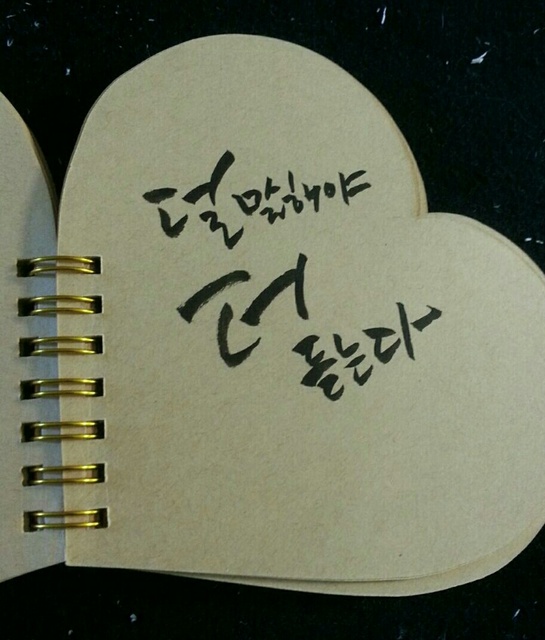 덜 말해야
더 듣는다